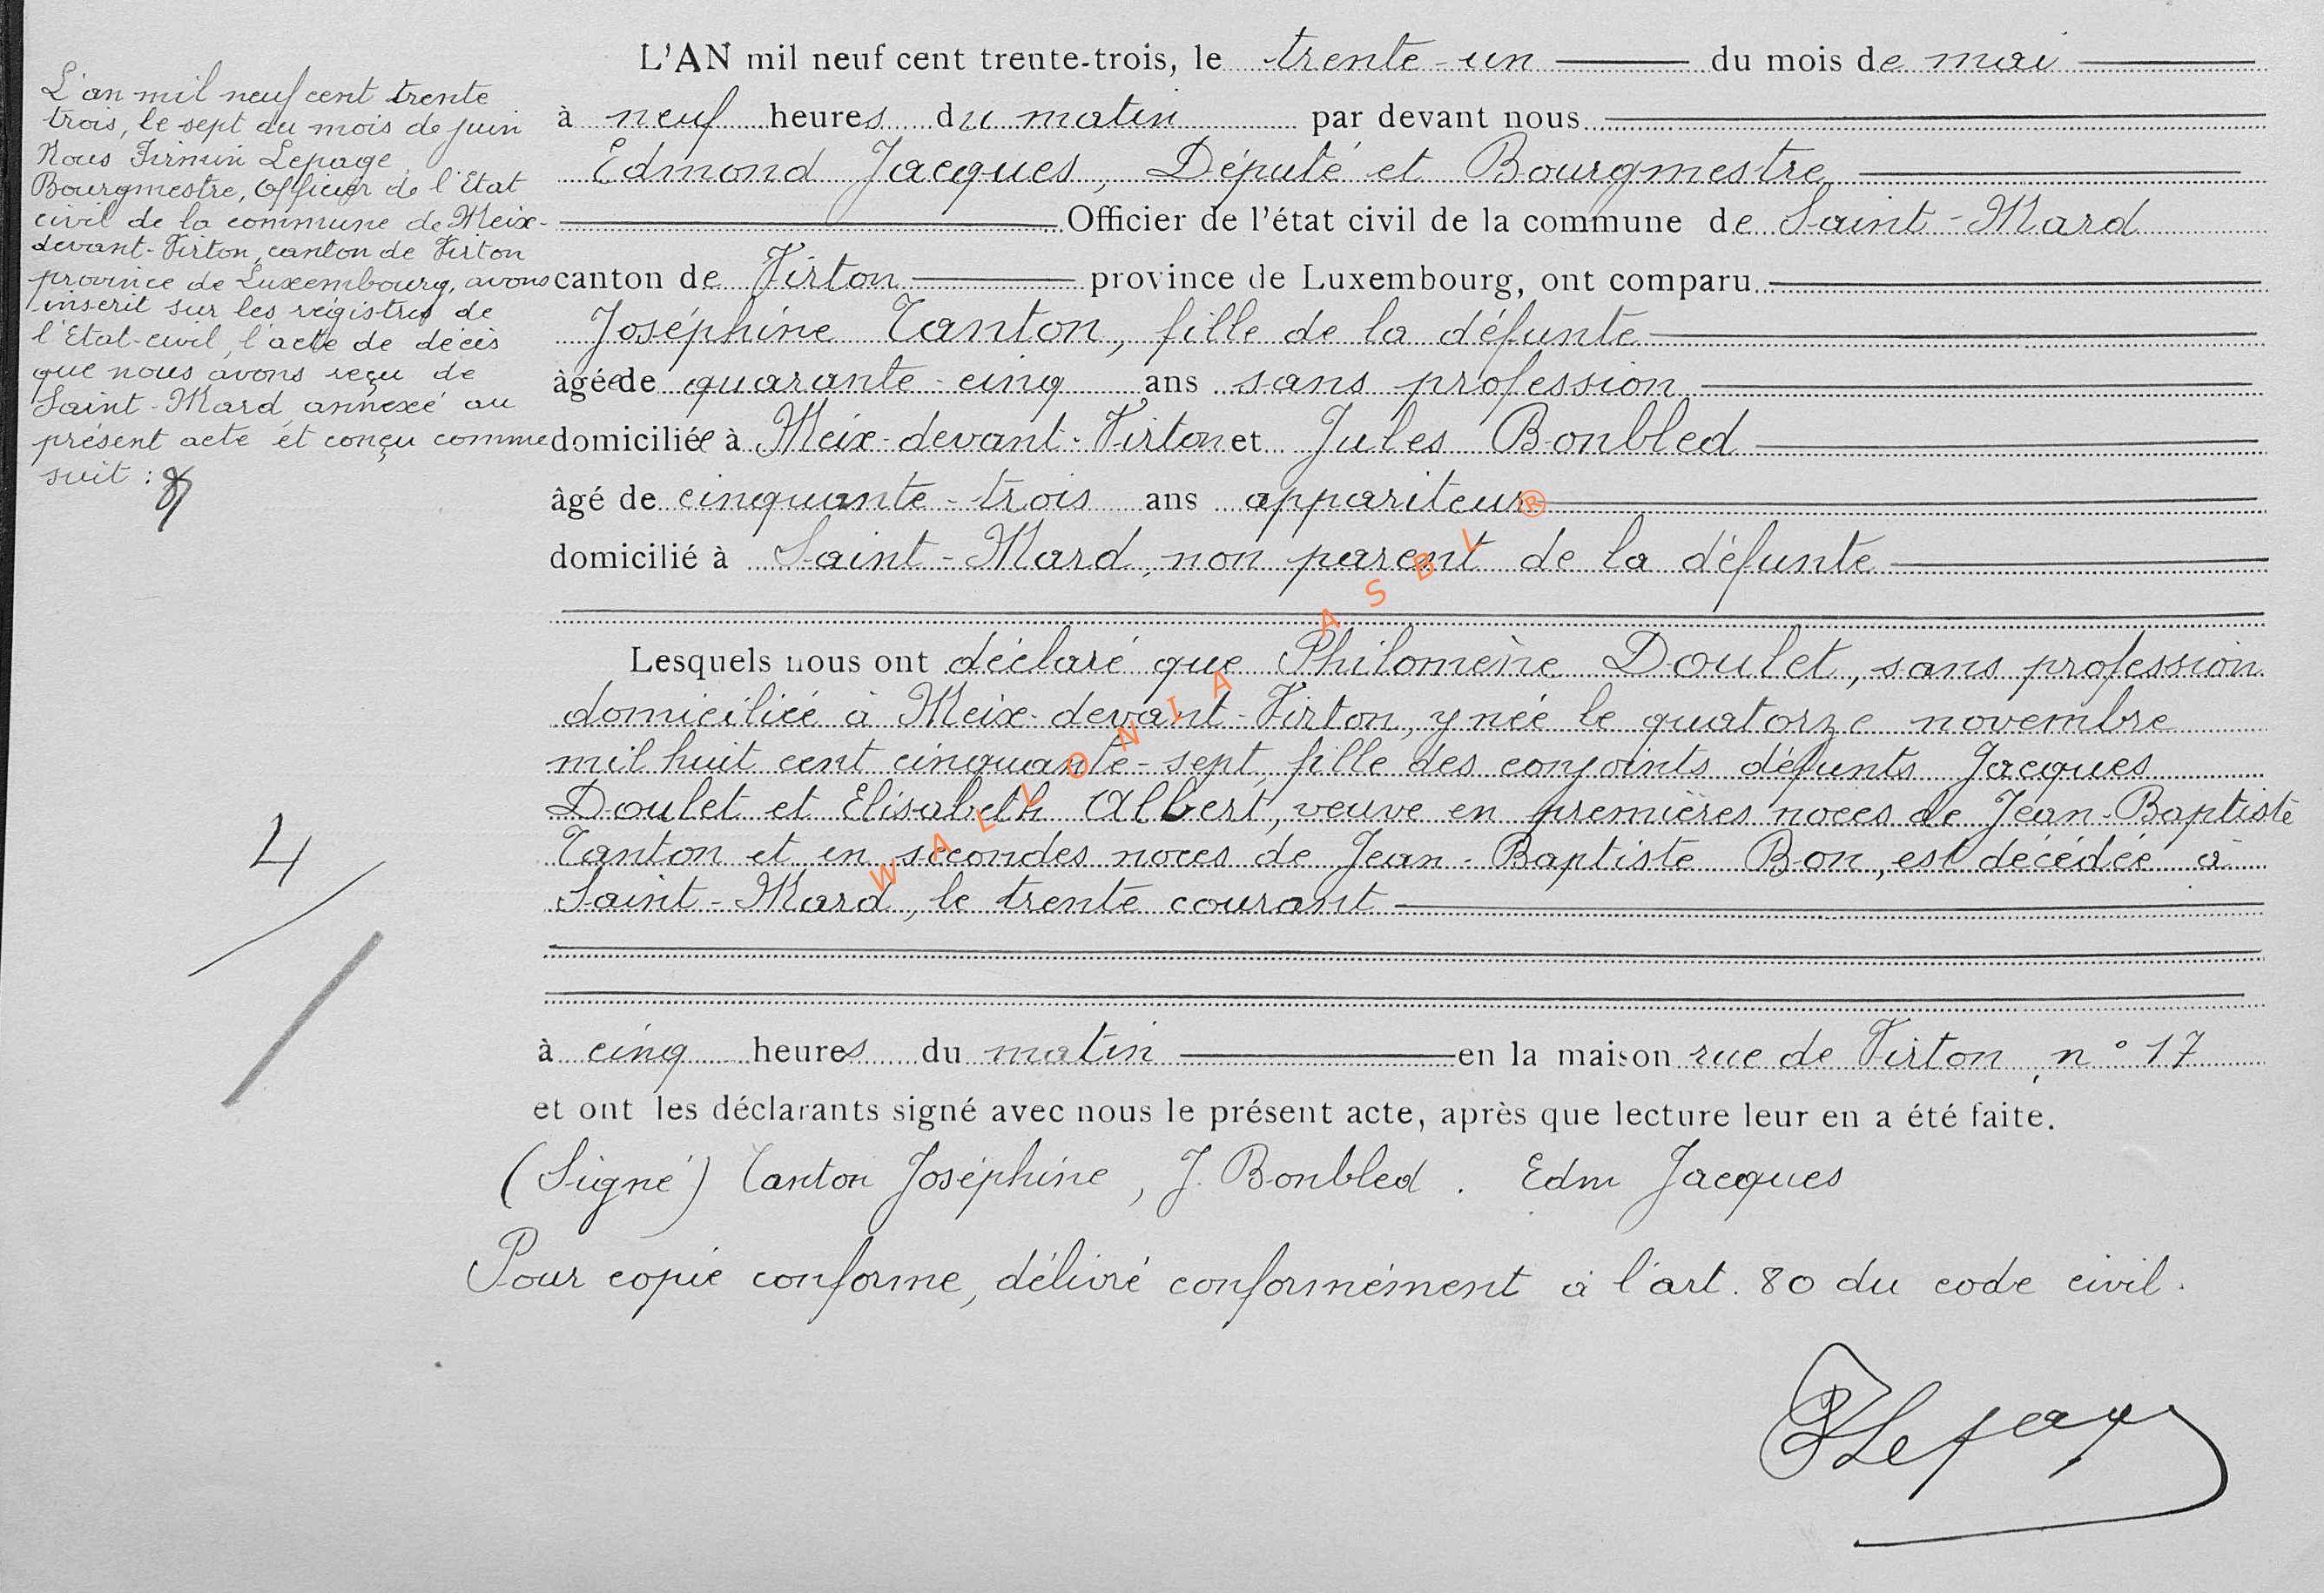 L'an mil neuf cent trente
trois, le sept du mois de juin
Nous Firmin Lepage,
Bourgmestre, Officier de l'Etat
civil de la commune de Meix-
devant-Virton, canton de Virton
province de Luxembourg, avons
inscrit sur les registres de
l'Etat-civil, l'acte de décès
que nous avons reçu de
Saint-Mard annexé au
présent acte et conçu comme
suit :
4
L'AN mil neuf cent trente-trois, le trente-un du mois de mai
à neuf heures du matin par devant nous
Edmond Jacques, Député et Bourgmestre
Officier de l'état civil de la commune de Saint-Mard
canton de Virton province de Luxembourg, ont comparu
Joséphine Tanton, fille de la défunte
âgée de quarante-cinq ans sans profession
domiciliée à Meix-devant-Virton et Jules Bonbled
âgé de cinquante-trois ans appariteur
domicilié à Saint-Mard, non parent de la défunte
Lesquels nous ont déclaré que Philomène Doulet, sans profession
domiciliée à Meix-devant-Virton, y née le quatorze novembre
mil huit cent cinquante-sept, fille des conjoints défunts Jacques
Doulet et Elisabeth Albert, veuve en premières noces de Jean-Baptiste
Tanton et en secondes noces de Jean-Baptiste Bon, est décédée à
Saint-Mard, le trente courant
à cinq heures du matin en la maison rue de Virton, n° 17
et ont les déclarants signé avec nous le présent acte, après que lecture leur en a été faite.
(Signé) Tanton Joséphine, J. Bonbled. Edm Jacques
Pour copie conforme, délivré conformément à l'art. 80 du code civil.
FLepage
WALLONIA ASBL ®